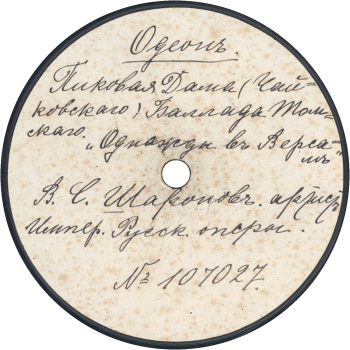 Одеонъ.
Пиковая Дама (Чай-
ковскаго) Баллада Том-
скаго.
„Однажды въ Верса-
лѣ"
В. С. Шароновъ. артистъ
Импер. Русск. оперы.
№ 107027.